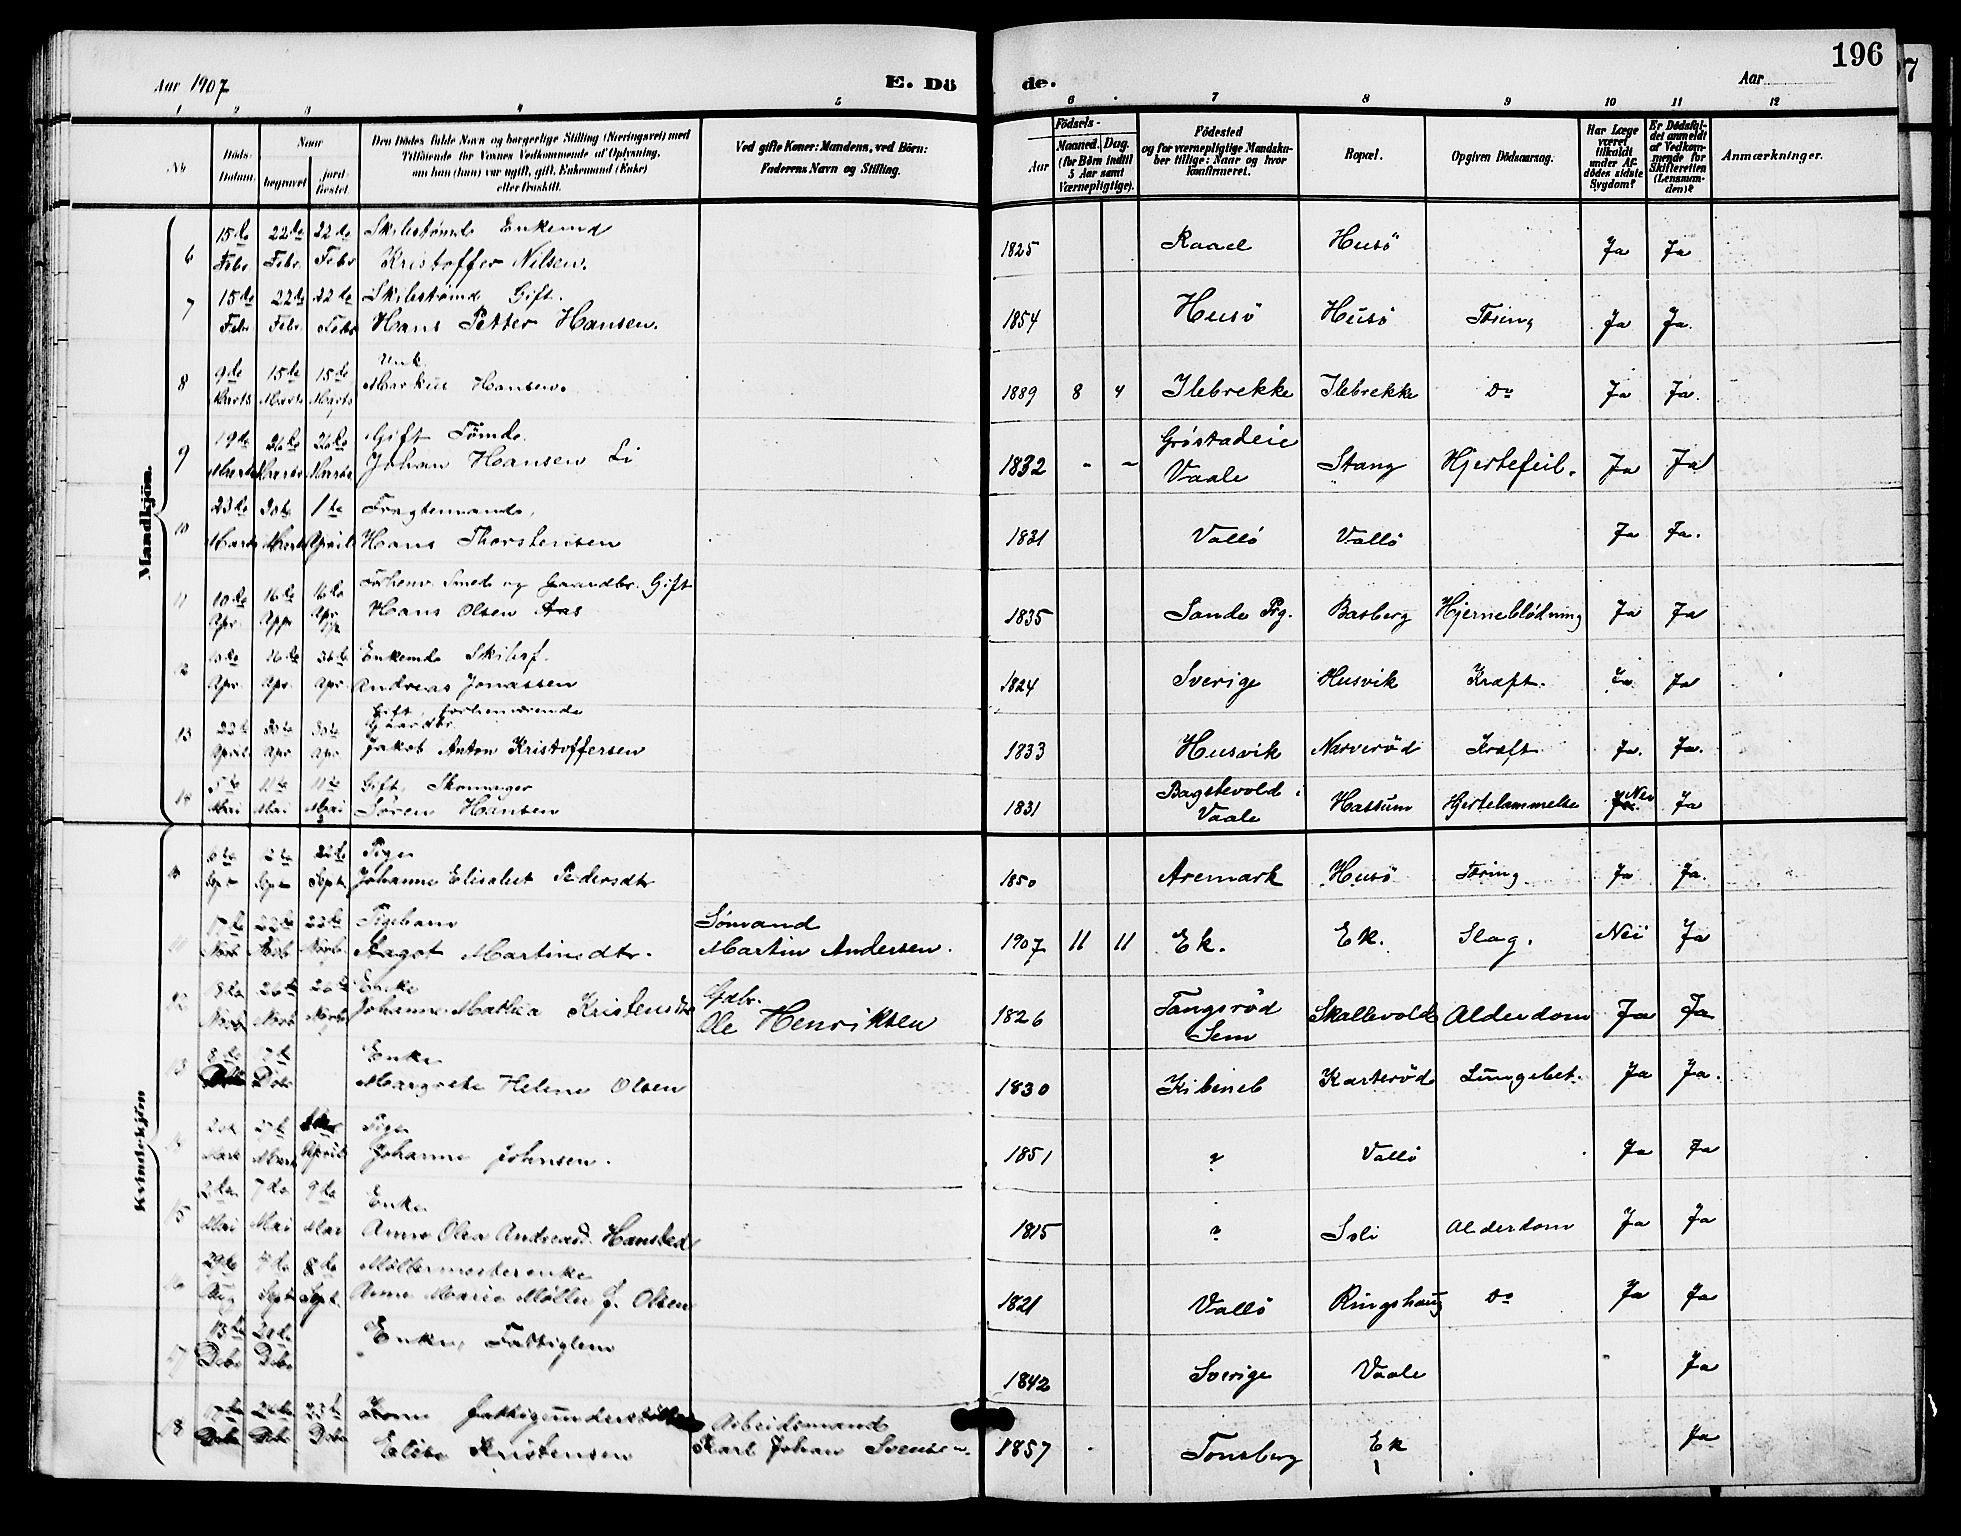 196
Aar 1907
E. Dö
de.
Aar
1 2 3 4 5 6 7 8 9 10 11 12
No
Döds-Datum.
Naar
begravet
jord-fæstet
Den Dødes fulde Navn og borgerlige Stilling (Næringsvei) med
Tilföiende for Voxnes Vedkommende af Oplysning,
om han (hun) var ugift, gift, Enkemand (Enke)
eller fraskilt.
Ved gifte Koner: Mandens, ved Börn:
Faderens Navn og Stilling.
Födsels-
Aar
Maaned. Dag.
(for Börn indtil
5 Aar samt
Værnepligtige).
Födested
og for værnepligtige Mandska-
ber tillige: Naar og hvor
konfirmeret.
Bopæl.
Opgiven Dödsaarsag.
Har Læge
været
tilkaldt
under Af-
dödes sidste
Sygdom?
Er Dödsfal-
det anmeldt
af Vedkom-
mende for
Skifteretten
(Lensman-
den)?
Anmærkninger.
Mandkjön.
6 15de Febr 22de Febr. 22de Febr Skibstømd Enkemd
Kristoffer Nilsen. 1825 Raael Husö Ja Ja
7 15de Febr 22de Febr. 22de Febr Skibstømd Gift.
Hans Petter Hansen. 1854 Husö Husö Tæring Ja Ja.
8 9de Marts 15de Marts 15de Marts Unk
Markus Hansen. 1889 8 4 Ilebrekke Ilebrekke Do Ja Ja.
9 19de Marts 26de Marts 26de Marts Gift Tømd.
Johan Hansen Li 1832 - - Gröstadeie
Vaale Stang Hjertefeil. Ja Ja
10 23de Marts 30te Marts 1te April Fragtemand,
Hans Thorstensen 1831 Vallö Vallö Ja Ja.
11 10de Apr. 16de Apr 16de Apr Forhenv. Smed og Gaardbr. Gift
Hans Olsen Aas 1835 Sande Prg. Basberg Hjerneblödning Ja Ja
12 Apr. 16de Apr. Apr Enkemd Skibsf.
Andreas Jonassen 1824 Sverige Husvik Kræft. Ja Ja
13 April 30te Apr 30te Apr Gift, forhenværende
Gaardbr.
Jakob Anton Kristoffersen 1833 Husvik Narverød Kræft Ja. Ja.
14 5te Mai 11te Mai 11te Mai Gift, Skomager
Søren Hansen 1831 Bagstevold i
Vaale Hassum Hjertelammelse Nei Ja
Kvindekjön
Sept Sept Sept Pige
Johanne Elisabet Pedersdtr 1850 Aremark Husö Tæring Ja Ja.
11 Novb Novb Pigebarn
Martinsdtr. Sømand
Martin Andersen. 1907 11 11 Ek. Ek. Slag. Nei Ja
12 8de Novb 26de Novb 26de Novb Enke
Johanne Mathea Kristensdtr Gdbr.
Ole Henriksen 1826 Tangsrød
Sem Skallevold Alderdom Ja Ja
13 Debr Enke
Margrete Helene Olsen 1830 Karterød Lungebet. Ja Ja.
Marts April Pige
Johanne Johnsen. 1851 ? Vallö Ja Ja
15 2den Mai 7de Mai 9de Mai Enke
Anne Olea Andreasd. Hansted 1815 ? Soli Alderdom Ja Ja
16 29de Aug 8de Sept. Møllermesterenke
Anne Marie Møller f. Olsen 1821 Vallö Ringshaug Do Ja Ja
17 Debr Debr Enke, Fattiglem
1842 Sverige Vaale Ja
18 Debr Debr Debr Kone fattigunderstöttet
Elise Kristensen Arbeidsmand
Karl Johan Svensen. 1857 Tønsberg Ek Ja